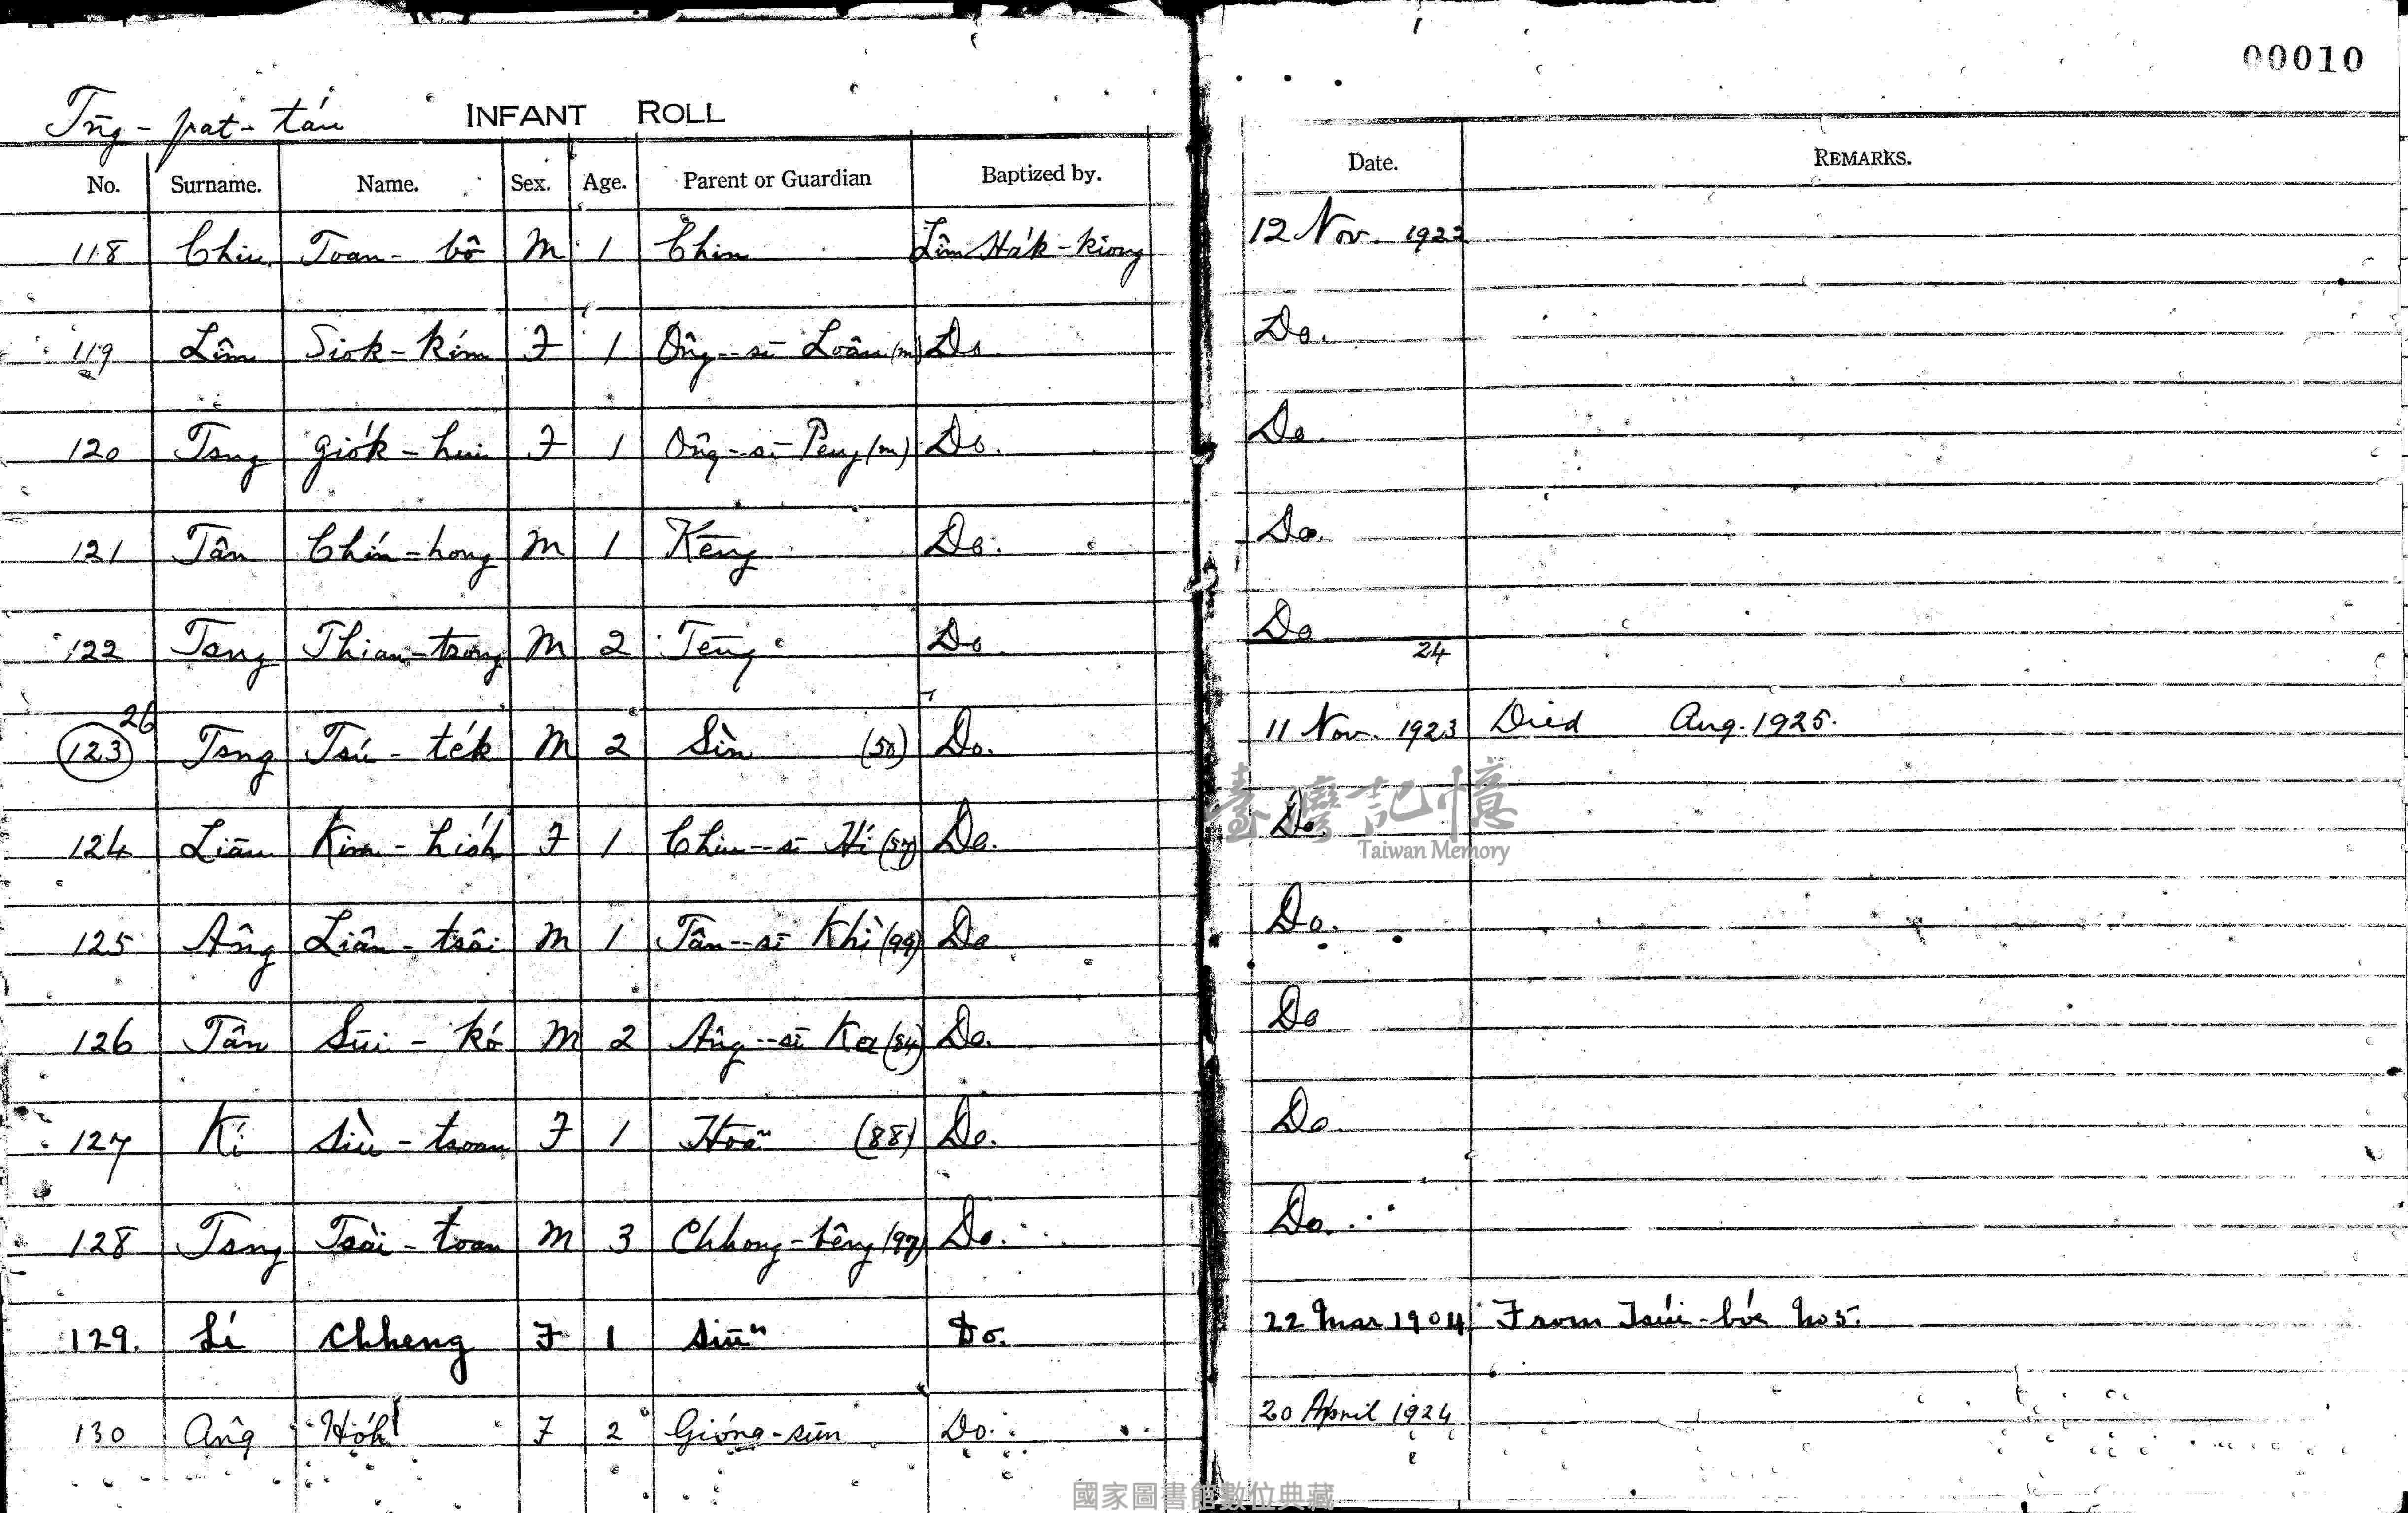 00010
Tn̄g-pat-táu INFANT ROLL
No. Surname. Name. Sex. Age. Parent or Guardian Baptized by. Date. REMARKS.
118 Chiu Toan-bô M 1 Chim Lîm Ha̍k-kiong 12 Nov. 1922
119 Lîm Siok-kim F 1 Ông--sī Loân (m) Do. Do.
120 Tsng Gio̍k-hui F 1 Ông--sī Peng (m) Do. Do.
121 Tân Chín-hong M 1 Kēng Do. Do.
122 Tsng Thian-tsong M 2 Tēng Do Do
24
26
123 Tsng Tsú-tek M 2 Sìn (50) Do. 11 Nov. 1923 Died Aug. 1925.
臺灣記憶
Taiwan Memory
124 Liāu Kim-hio̍h F 1 Chiu--sī Hí (57) Do. Do.
125 Âng Liân-tsâi M 1 Tân--sī Khì (99) Do Do.
126 Tân Sūi-kó M 2 Âng--sī Koa (84) Do. Do
127 Kí Siù-tsoan F 1 Hoāⁿ (88) Do. Do
128 Tsng Tsài-toan M 3 Chhong-bêng (97) Do. Do.
129. Lí Chheng F 1 Siūⁿ Do. 22 Mar 1904 From Tsúi-bóe No 5.
130 Âng Hio̍h F 2 Gióng-sūn Do. 20 April 1924
國家圖書館數位典藏